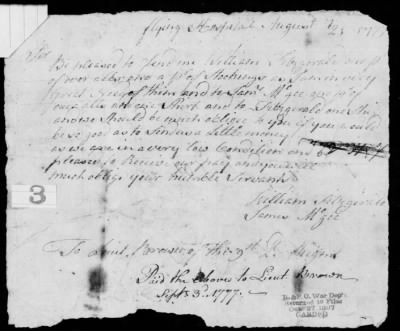 flying Hospital August 23 1777
Sir
Be pleased to Send me William Fitzgerald one pr
of over alls and a pr of Stockings as I am in very
great Need of them and to James Mc.Gee one pr of
over alls and one Shirt and to Fitzgerald one Shirt
and we Should be much oblige to you if you would
be so good as to Send us a little money
as we are in a very low Condition and be
pleased to Receive our pay and you will
much oblige your humble Servants
William Fitzgerald
James Mc.Gee
3
To Lieut. Brown of the 9th P. Regmt
Paid the above to Lieut Brown
Septr 3d. 1777.
R. & P. O. War Dept.
Returned to Files
1907
CARDED